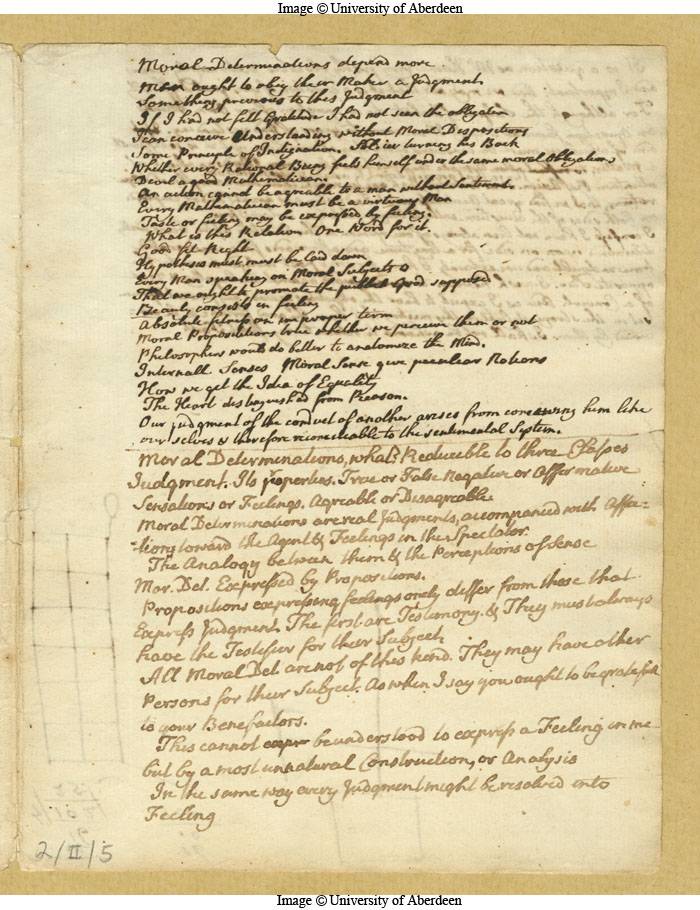 Image © University of Aberdeen
Moral Determinations depend more
Man ought to obey their Maker a Judgment
Something previous to this Judgment
If I had not felt Gratitude I had not seen the obligation
I can conceive Understanding without Moral Dispositions
Some Principle of Indignation. turning his Back
Whether every Rational Being feels himself under the same moral Obligations
Devil a good Mathematician
An action cannot be agreable to a man without Sentiment.
Every Mathematician must be a virtuous Man
Taste or feeling may be expressed by feeling.
What is this Relation One Word for it.
Good fit Right
Hypothesis must must be laid down
Every Man speaking on Moral Subjects
That we ought to promote the publick Good supposed
Beauty consists in feeling
Absolute fitness an improper term
Moral Propositions true whether we perceive them or not
Philosophers would do better to anatomize the Mind.
Internall Senses Moral Sense give peculiar Notions
How we get the Idea of Equality
The Heart distinguished from Reason.
Our judgment of the conduct of another arises from conceiving him like
our selves & therefore reconcileable to the sentimental System.
Moral Determinations, what? Reducible to three Classes
Judgment. Its properties. True or False Negative or Affirmative
Sensations or Feelings. Agreable or Disagreable
Moral Determinations are real Judgments, accompanied with Affec-
-tions toward the Agent & Feelings in the Spectator.
The Analogy between them & the Perceptions of Sense
Mor. Det. Expressed by Propositions.
Propositions expressing feelings onely differ from these that
Express Judgment. The first are Testimony. & They must always
have the Testifier for their Subject
All Moral Det are not of this kind. They may have other
Persons for their Subject. As when I say you ought to be gratefull
to your Benefactors.
This cannot be understood to express a Feeling in me
but by a most unnatural Construction, or Analysis
In the same way every Judgment might be resolved into
Feeling
2/II/5
Image © University of Aberdeen